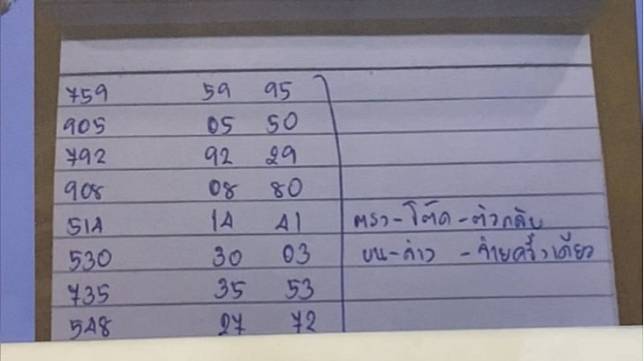 759 59 95
905 05 50
792 92 29
908 08 80
514 14 41 ตรง-โต๊ด-ตัวกลับ
530 30 03 บน-ล่าง -จ่ายครั้งเดียว
735 35 53
548 27 72